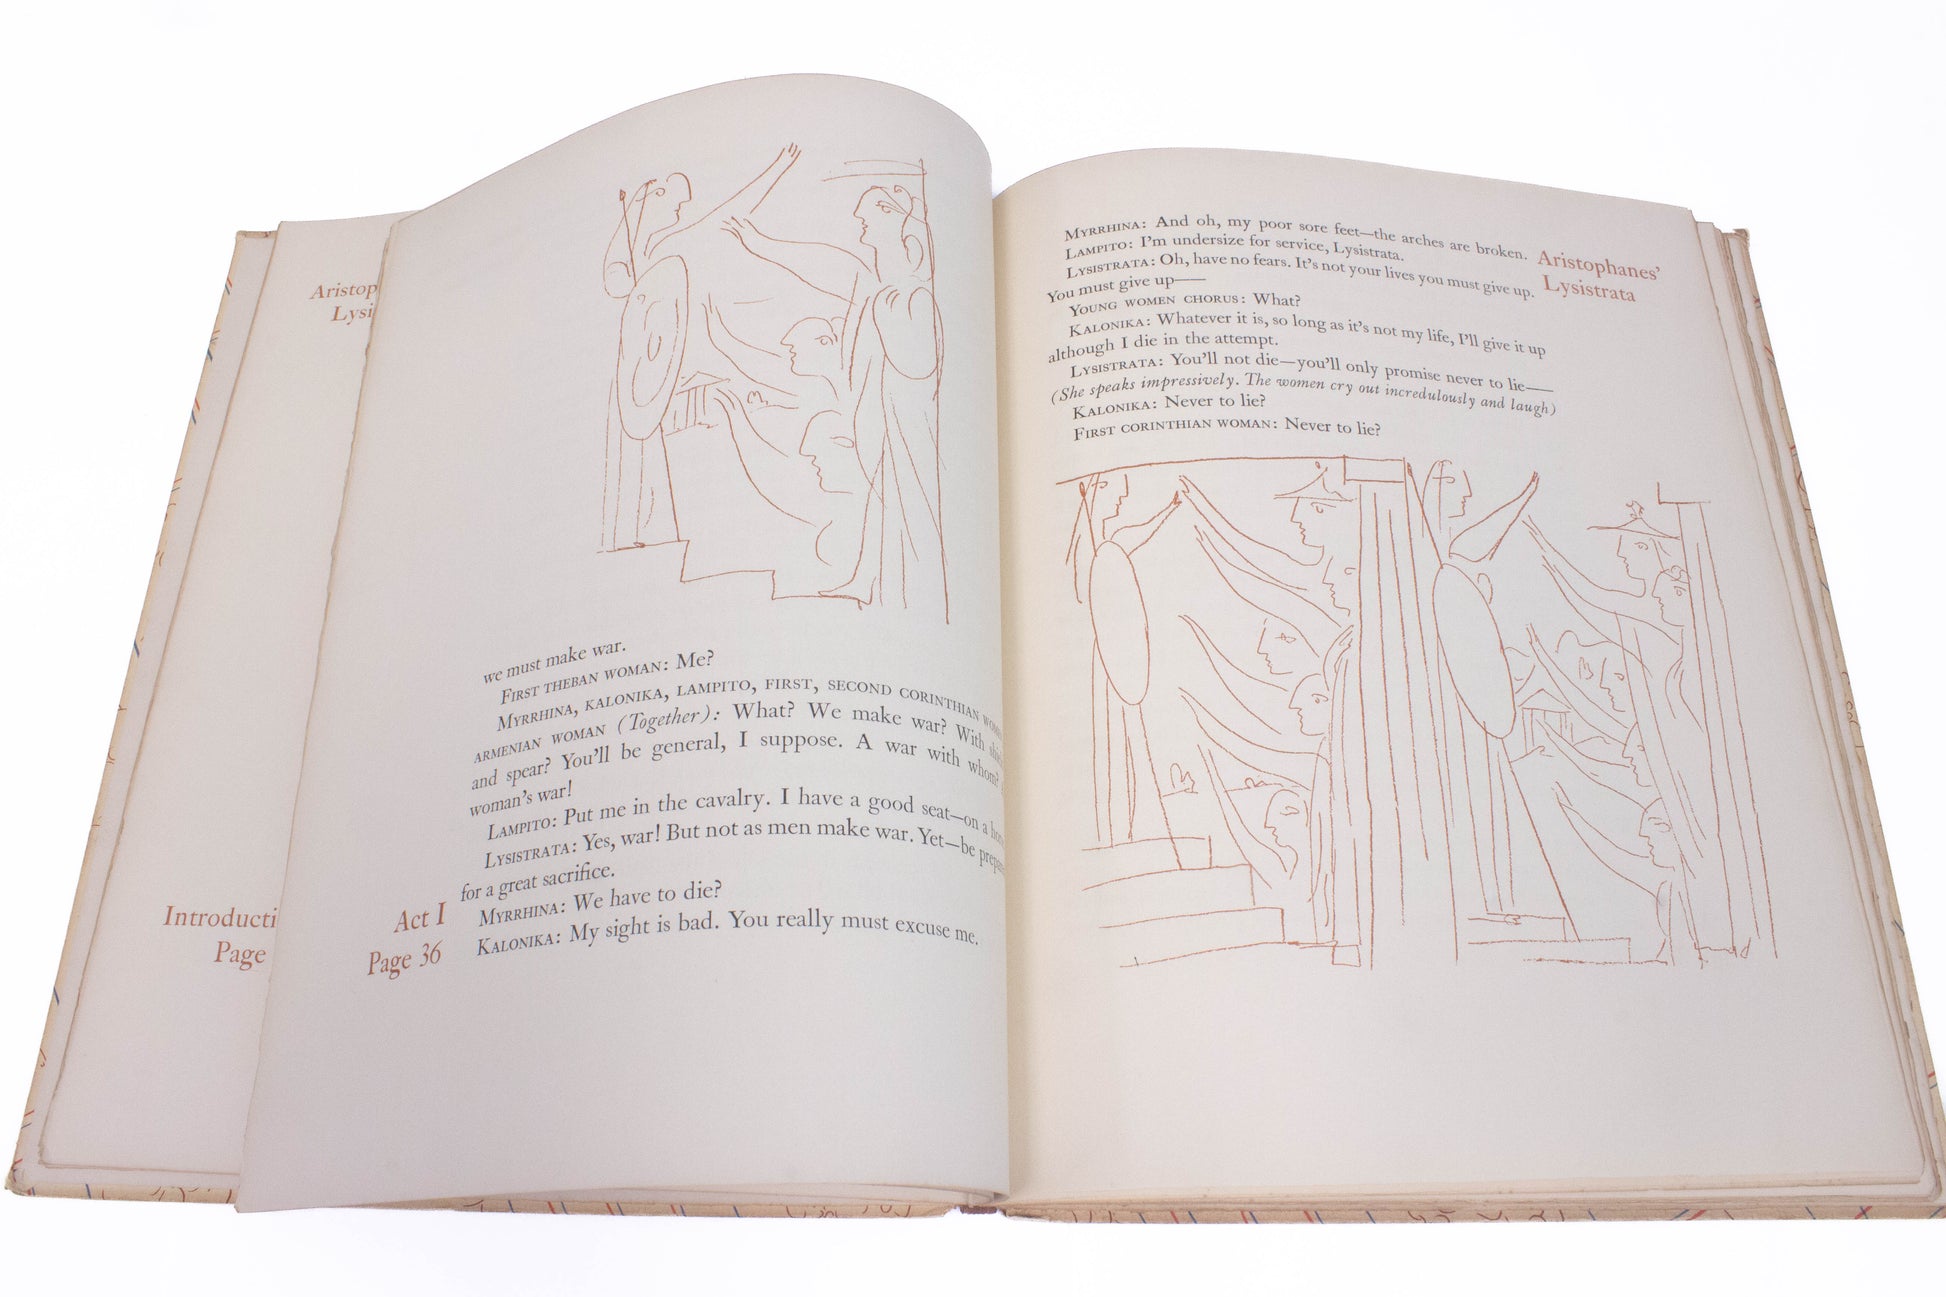 Aristop
Lysi
Introducti
Page
we must make war.
First Theban Woman: Me?
Myrrhina, Kalonika, Lampito, First, Second Corinthian
Armenian Woman (Together): What? We make war? With
and spear? You'll be general, I suppose. A war with whom?
woman's war!
Lampito: Put me in the cavalry. I have a good seat—on a
Lysistrata: Yes, war! But not as men make war. Yet—be
for a great sacrifice.
Myrrhina: We have to die?
Kalonika: My sight is bad. You really must excuse me.
Act I
Page 36
Myrrhina: And oh, my poor sore feet—the arches are broken.
Lampito: I'm undersize for service, Lysistrata.
Lysistrata: Oh, have no fears. It's not your lives you must give up.
You must give up——
Young Women Chorus: What?
Kalonika: Whatever it is, so long as it's not my life, I'll give it up
although I die in the attempt.
Lysistrata: You'll not die—you'll only promise never to lie——
(She speaks impressively. The women cry out incredulously and laugh)
Kalonika: Never to lie?
First Corinthian Woman: Never to lie?
Aristophanes'
Lysistrata